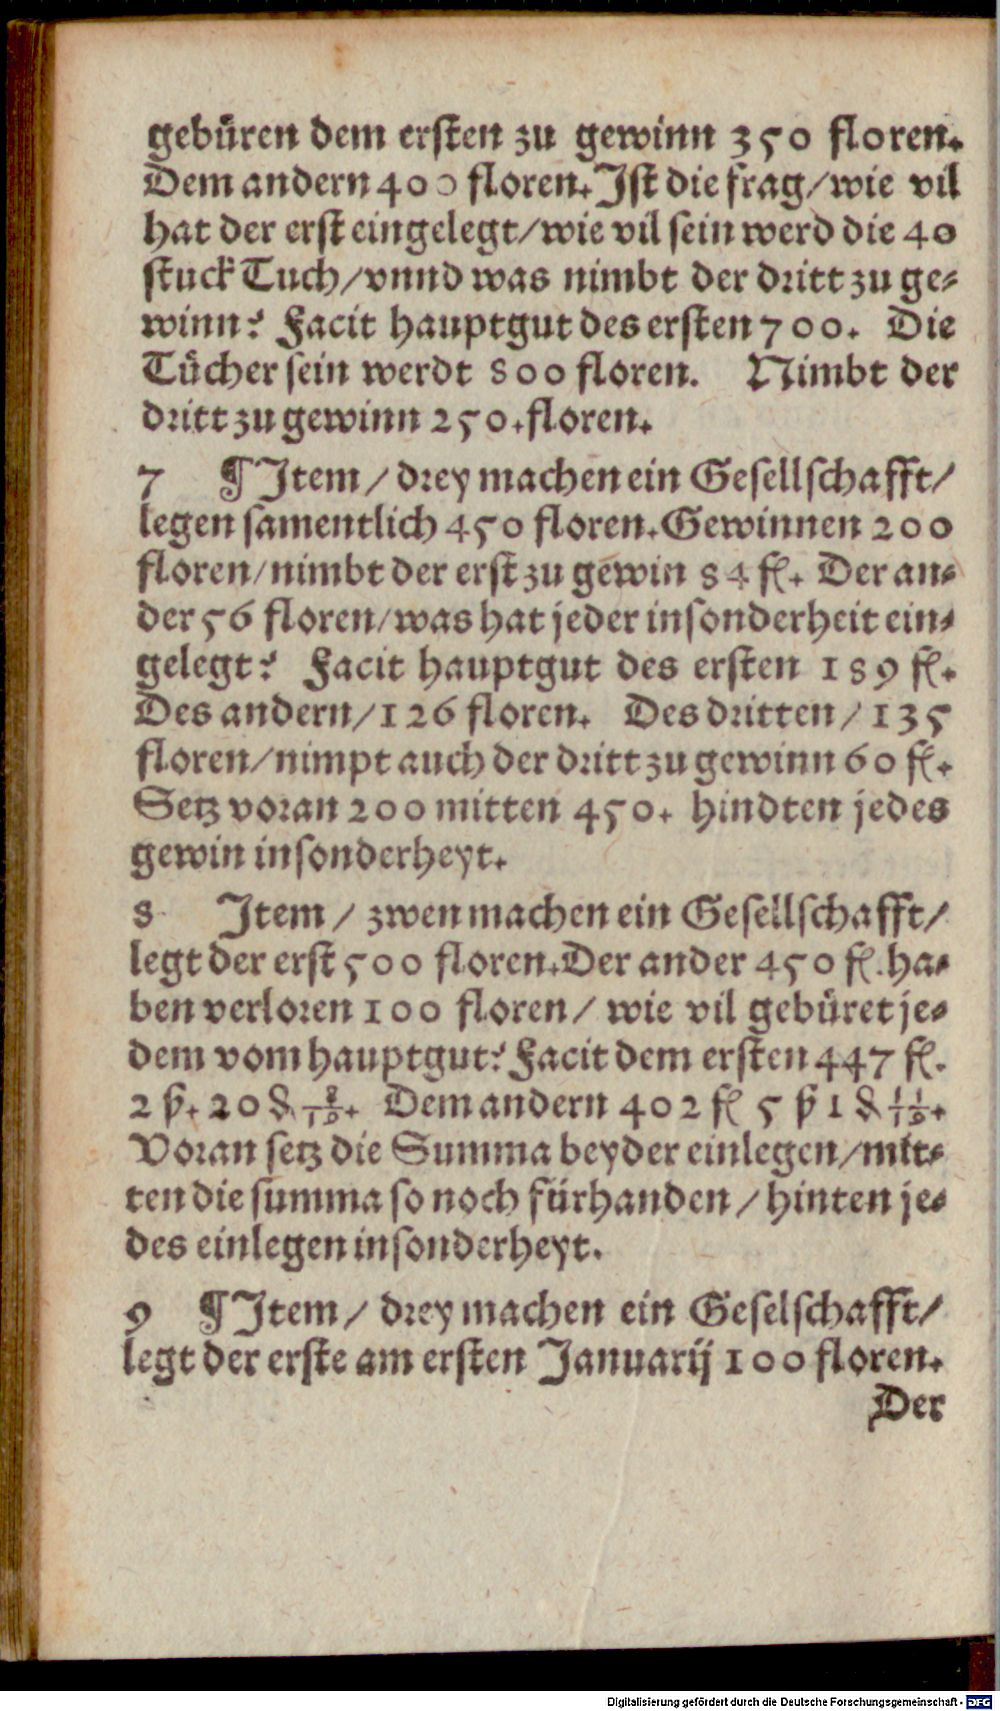 gebüren dem ersten zu gewinn 350 floren.
Dem andern 400 floren. Jst die frag/ wie vil
hat der erst eingelegt/ wie vil sein werd die 40
stuck Tuch/ vnnd was nimbt der dritt zu ge-
winn? Facit hauptgut des ersten 700. Die
Tücher sein werdt 800 floren. Nimbt der
dritt zu gewinn 250. floren.
7 ¶ Jtem/ drey machen ein Gesellschafft/
legen samentlich 450 floren. Gewinnen 200
floren/ nimbt der erst zu gewin 84 fl. Der an-
der 56 floren/ was hat jeder insonderheit ein-
gelegt? Facit hauptgut des ersten 189 fl.
Des andern/ 126 floren. Des dritten/ 135
floren/ nimpt auch der dritt zu gewinn 60 fl.
Setz voran 200 mitten 450. hindten jedes
gewin insonderheyt.
8 Jtem/ zwen machen ein Gesellschafft/
legt der erst 500 floren. Der ander 450 fl. ha-
ben verloren 100 floren/ wie vil gebüret je-
dem vom hauptgut? Facit dem ersten 447 fl.
2 ß. 20 ₰ 8/19. Dem andern 402 fl 5 ß 1 ₰ 11/19.
Voran setz die Summa beyder einlegen/ mit-
ten die summa so noch fürhanden/ hinten je-
des einlegen insonderheyt.
9 ¶ Jtem/ drey machen ein Geselschafft/
legt der erste am ersten Januarij 100 floren.
Der
Digitalisierung gefördert durch die Deutsche Forschungsgemeinschaft - DFG